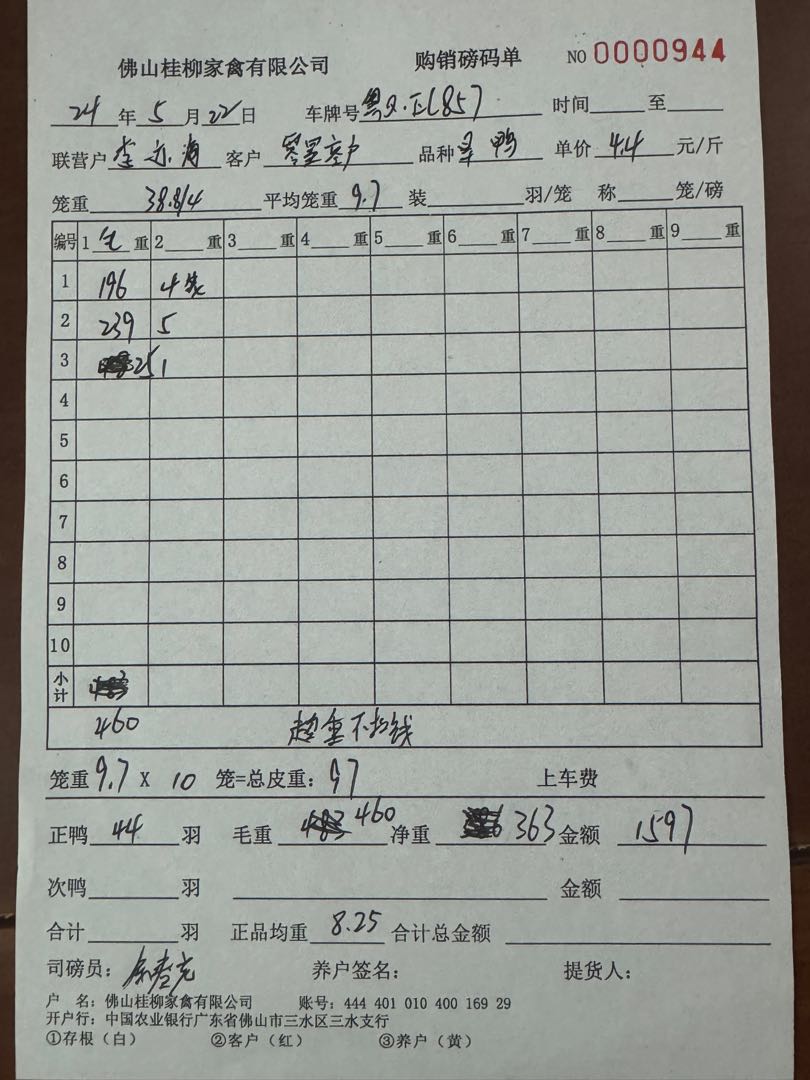 佛山桂柳家禽有限公司 购销磅码单 NO 0000944
24 年 5 月 22 日 车牌号 857 时间 至
联营户 李 海 客户 零星客户 品种 鸭 单价 4.4 元/斤
笼重 38.8/4 平均笼重 9.7 装 羽/笼 称 笼/磅
编号 1 毛 重 2 重 3 重 4 重 5 重 6 重 7 重 8 重 9 重
1 196 4装
2 239 5
3 251
4
5
6
7
8
9
10
小计
460 超重不扣钱
笼重 9.7 X 10 笼=总皮重: 97 上车费
正鸭 44 羽 毛重 460 净重 363 金额 1597
次鸭 羽 金额
合计 羽 正品均重 8.25 合计总金额
司磅员: 养户签名: 提货人:
户 名: 佛山桂柳家禽有限公司 账号: 444 401 010 400 169 29
开户行: 中国农业银行广东省佛山市三水区三水支行
①存根(白) ②客户(红) ③养户(黄)